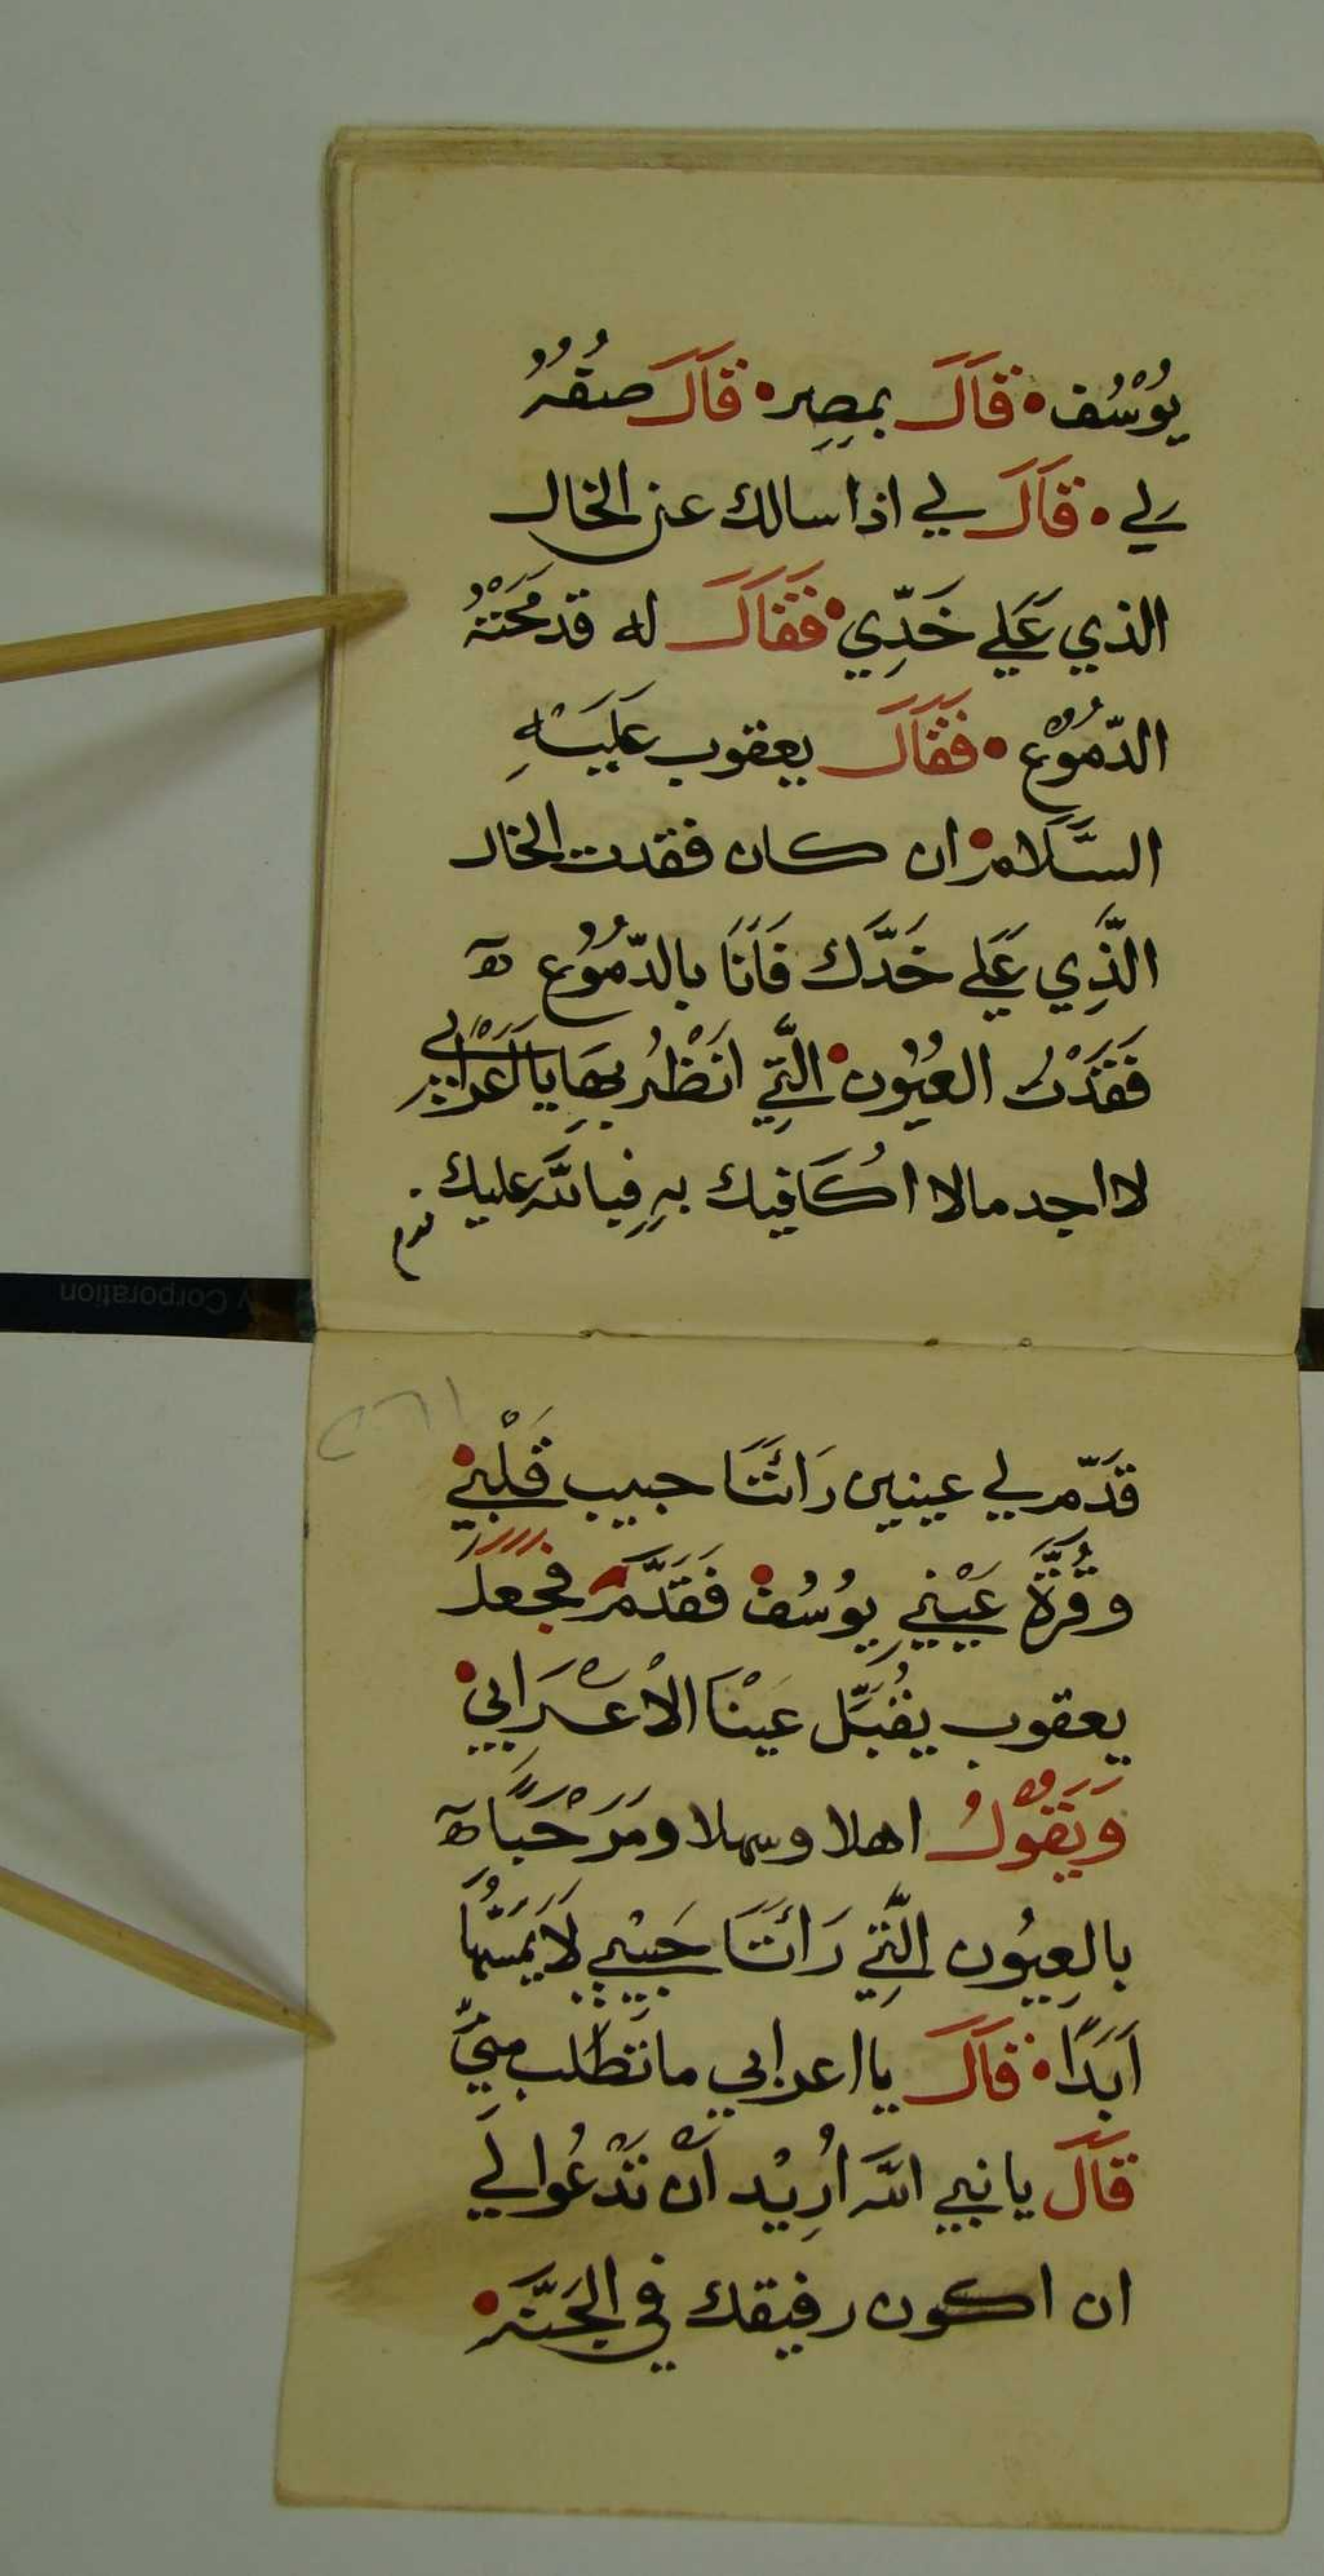 يُوْسُف • قَالَ بمصِر • قَالَ صفهُ
لي • قَالَ لي اذا سالك عن الخال
الذي عَلي خَدِّي • فَقَالَ له قد محَتْهُ
الدّمُوْع • فَقَالَ يعقوب عَلَيْهِ
السَّلَام • ان كان فقدت الخال
الَّذِي عَلي خَدَّك فَانَا بالدّمُوُع ۃ
فَقَدْتُ العيُون • الَّتِي انَظْرُ بِهَا يَا اَعْرَابي
لا اجد مالا اُكَافيك بهِ فبالله عليك
قدّم لي عينين رَائتَا حبيب قَلْبِي •
وقُرَّة عَيْنِي يوُسُف • فَقَدَّمَ • فجعل
يعقوب يقُبَّل عَيْنَا الاْعْرَابي •
وَيَقُوْلُ اهلا وسهلا ومَرْحَبًا ۃ
بالعِيُون الَّتِي رَائتَا حَبيْبي لَا يمَسّهُا
اَبَدًا • قَالَ يا اعرابي ما تطلب مِنيّ
قَالَ يا نبي الله اُرِيْد انْ تَدْعُوا لي
ان اكون رفيقك في الجَنَّة •
Corporation